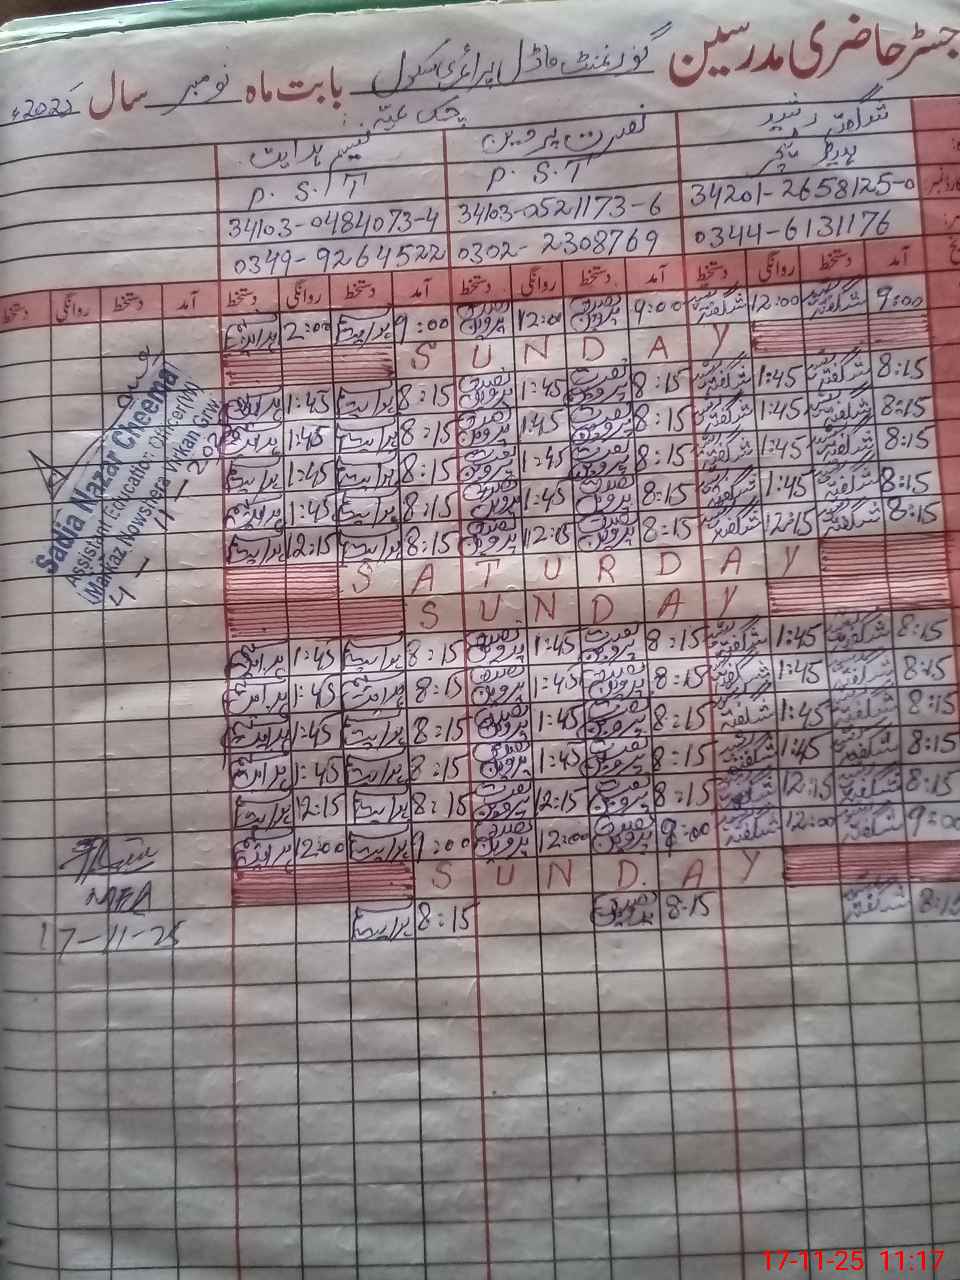 جسٹر حاضری مدرسین گورنمنٹ ماڈل پرائمری سکول بابت ماہ نومبر سال 2025ء
شگفتہ نصرت پروین نسیم ہدایت
ہیڈ ٹیچر P.S.T P.S.T
34201-2658125-0 34103-0521173-6 34103-0484073-4
0344-6131176 0302-2308769 0349-9264522
آمد دستخط روانگی دستخط آمد دستخط روانگی دستخط آمد دستخط روانگی دستخط آمد دستخط روانگی دستخط
9:00 شگفتہ 12:00 شگفتہ 9:00 نصرت پروین 12:00 نصرت پروین 9:00 ہدایت 2:00 ہدایت
SUNDAY
8:15 شگفتہ 1:45 شگفتہ 8:15 نصرت پروین 1:45 نصرت پروین 8:15 ہدایت 1:45 ہدایت
8:15 شگفتہ 1:45 شگفتہ 8:15 نصرت پروین 1:45 نصرت پروین 8:15 ہدایت 1:45 ہدایت
8:15 شگفتہ 1:45 شگفتہ 8:15 نصرت پروین 1:45 نصرت پروین 8:15 ہدایت 1:45 ہدایت
8:15 شگفتہ 1:45 شگفتہ 8:15 نصرت پروین 1:45 نصرت پروین 8:15 ہدایت 1:45 ہدایت
8:15 شگفتہ 12:15 شگفتہ 8:15 نصرت پروین 12:15 نصرت پروین 8:15 ہدایت 12:15 ہدایت
SATURDAY
SUNDAY
8:15 شگفتہ 1:45 شگفتہ 8:15 نصرت پروین 1:45 نصرت پروین 8:15 ہدایت 1:45 ہدایت
8:15 شگفتہ 1:45 شگفتہ 8:15 نصرت پروین 1:45 نصرت پروین 8:15 ہدایت 1:45 ہدایت
8:15 شگفتہ 1:45 شگفتہ 8:15 نصرت پروین 1:45 نصرت پروین 8:15 ہدایت 1:45 ہدایت
8:15 شگفتہ 1:45 شگفتہ 8:15 نصرت پروین 1:45 نصرت پروین 8:15 ہدایت 1:45 ہدایت
8:15 شگفتہ 12:15 شگفتہ 8:15 نصرت پروین 12:15 نصرت پروین 8:15 ہدایت 12:15 ہدایت
9:00 شگفتہ 12:00 شگفتہ 9:00 نصرت پروین 12:00 نصرت پروین 9:00 ہدایت 12:00 ہدایت
SUNDAY
8:15 شگفتہ 8:15 نصرت پروین 8:15 ہدایت
Sadia Nazar Cheema
Assistant Education Officer (W)
(Markaz Nowshera Virkan Grw)
4-11-202
MEA
17-11-25
17-11-25 11:17